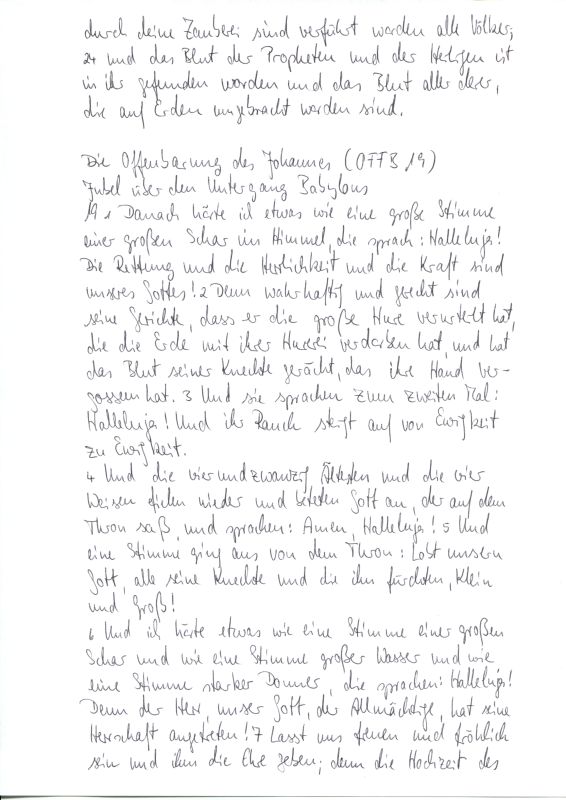 durch deine Zauberei sind verführt worden alle Völker;
24 und das Blut der Propheten und der Heiligen ist
in ihr gefunden worden und das Blut aller derer,
die auf Erden umgebracht worden sind.
Die Offenbarung des Johannes (OFFB 19)
Jubel über den Untergang Babylons
19 1 Danach hörte ich etwas wie eine große Stimme
einer großen Schar im Himmel, die sprach: Halleluja!
Die Rettung und die Herrlichkeit und die Kraft sind
unseres Gottes! 2 Denn wahrhaftig und gerecht sind
seine Gerichte, dass er die große Hure verurteilt hat,
die die Erde mit ihrer Hurerei verdorben hat, und hat
das Blut seiner Knechte gerächt, das ihre Hand ver-
gossen hat. 3 Und sie sprachen zum zweiten Mal:
Halleluja! Und ihr Rauch steigt auf von Ewigkeit
zu Ewigkeit.
4 Und die vierundzwanzig Ältesten und die vier
Wesen fielen nieder und beteten Gott an, der auf dem
Thron saß, und sprachen: Amen, Halleluja! 5 Und
eine Stimme ging aus von dem Thron: Lobt unsern
Gott, alle seine Knechte und die ihn fürchten, Klein
und Groß!
6 Und ich hörte etwas wie eine Stimme einer großen
Schar und wie eine Stimme großer Wasser und wie
eine Stimme starker Donner, die sprachen: Halleluja!
Denn der Herr, unser Gott, der Allmächtige, hat seine
Herrschaft angetreten! 7 Lasst uns freuen und fröhlich
sein und ihm die Ehre geben; denn die Hochzeit des